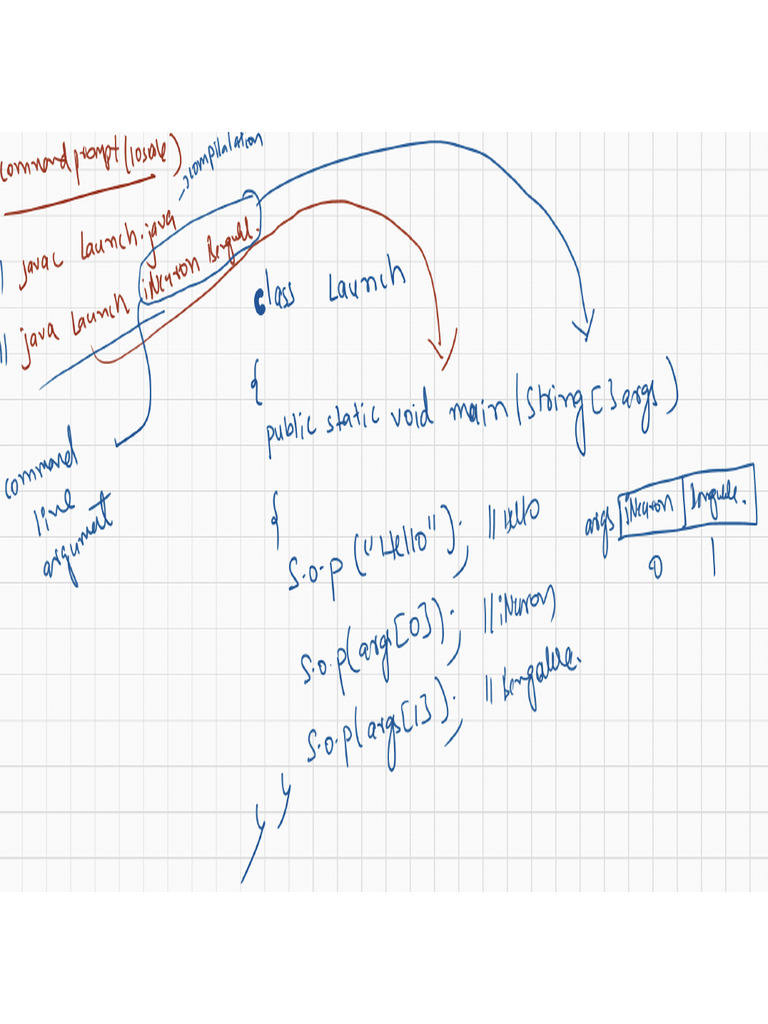 command prompt (console)
→ compilalation
|| javac Launch.java
|| java Launch iNeuron
command
line
argument
class Launch
{
public static void main(String[] args)
{
S.o.p("Hello"); ||Hello
S.o.p(args[0]); ||iNeuron
S.o.p(args[1]);
args iNeuron
0 1
}
}